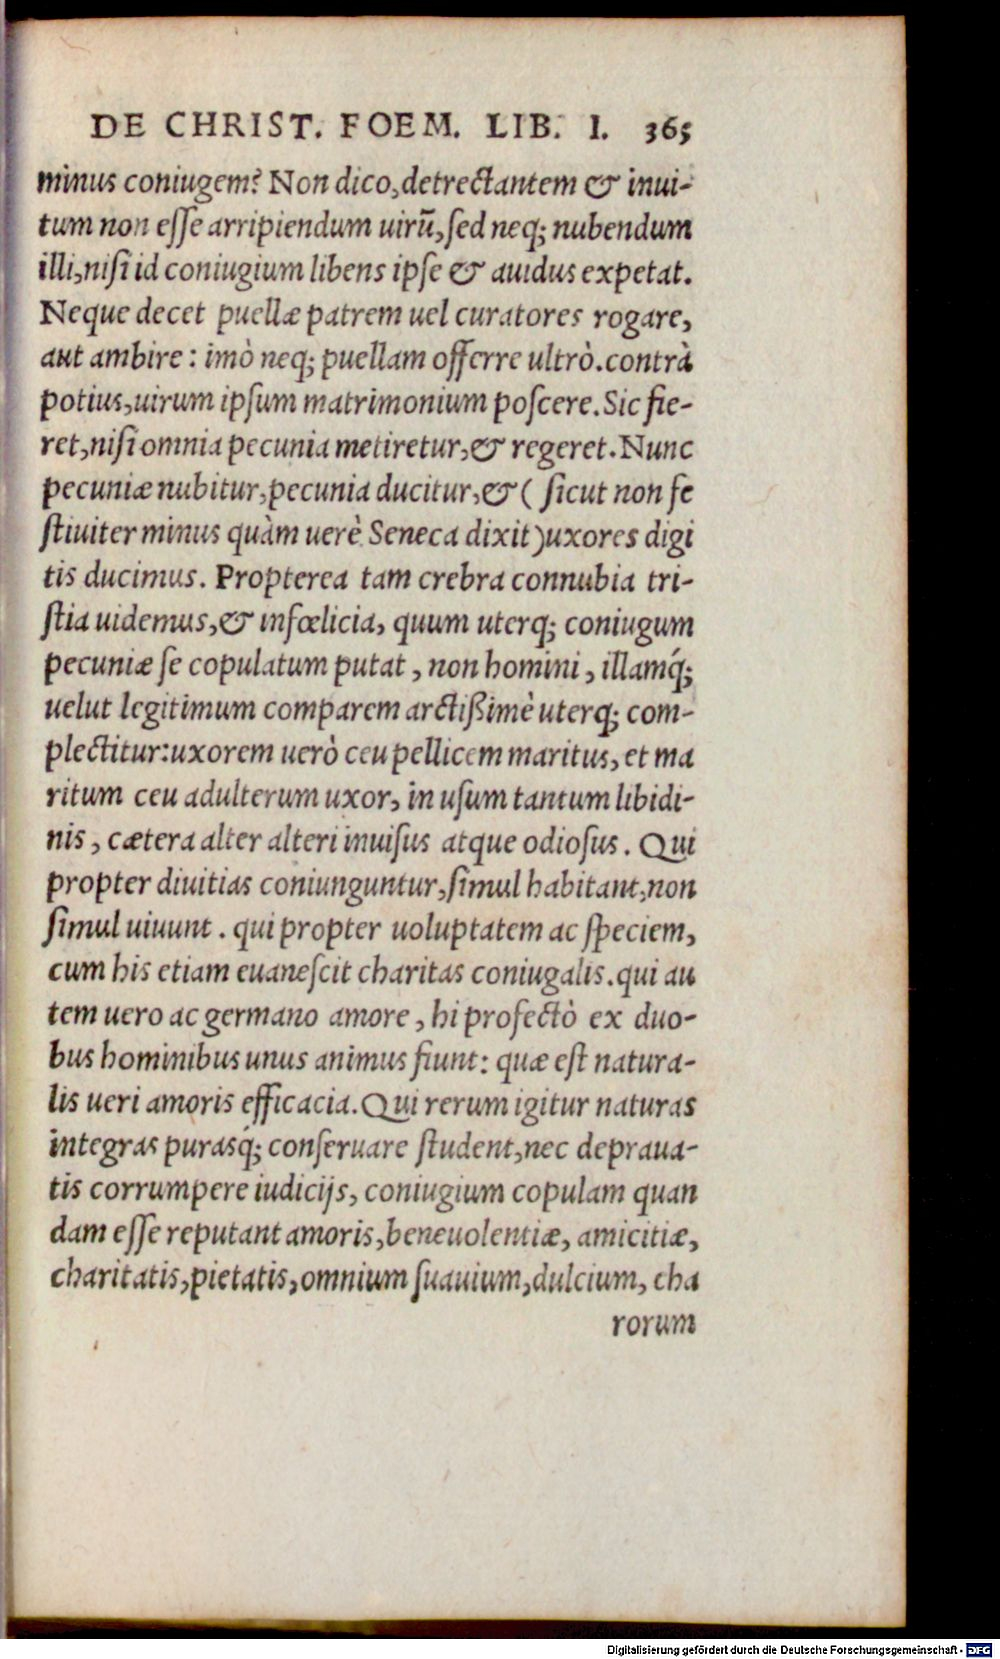 DE CHRIST. FOEM. LIB. I. 365
minus coniugem? Non dico, detrectantem & inui-
tum non esse arripiendum uirū, sed neq; nubendum
illi, nisi id coniugium libens ipse & auidus expetat.
Neque decet puellæ patrem uel curatores rogare,
aut ambire: imò neq; puellam offerre ultrò. contrà
potius, uirum ipsum matrimonium poscere. Sic fie-
ret, nisi omnia pecunia metiretur, & regeret. Nunc
pecuniæ nubitur, pecunia ducitur, & (sicut non fe
stiuiter minus quàm uerè Seneca dixit) uxores digi
tis ducimus. Propterea tam crebra connubia tri-
stia uidemus, & infœlicia, quum uterq; coniugum
pecuniæ se copulatum putat, non homini, illamq́;
uelut legitimum comparem arctißimè uterq; com-
plectitur: uxorem uerò ceu pellicem maritus, et ma
ritum ceu adulterum uxor, in usum tantum libidi-
nis, cætera alter alteri inuisus atque odiosus. Qui
propter diuitias coniunguntur, simul habitant, non
simul uiuunt. qui propter uoluptatem ac speciem,
cum his etiam euanescit charitas coniugalis. qui au
tem uero ac germano amore, hi profectò ex duo-
bus hominibus unus animus fiunt: quæ est natura-
lis ueri amoris efficacia. Qui rerum igitur naturas
integras purasq́; conseruare student, nec depraua-
tis corrumpere iudicijs, coniugium copulam quan
dam esse reputant amoris, beneuolentiæ, amicitiæ,
charitatis, pietatis, omnium suauium, dulcium, cha
rorum
Digitalisierung gefördert durch die Deutsche Forschungsgemeinschaft - DFG